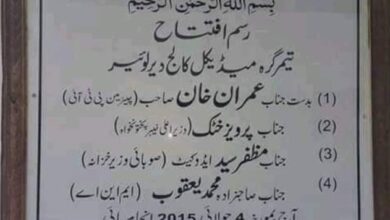 بِسْمِ اللهِ الرَّحْمٰنِ الرَّحِيْمِ
رسم افتتاح
تیمرگرہ میڈیکل کالج دیر لوئیر
(1) بدست جناب عمران خان صاحب (چیئرمین پی ٹی آئی)
(2) جناب پرویز خٹک (وزیراعلیٰ خیبرپختونخواہ)
(3) جناب مظفر سید ایڈوکیٹ (صوبائی وزیر خزانہ)
(4) جناب صاحبزادہ محمد یعقوب (ایم این اے)
آج 4 جولائی 2015